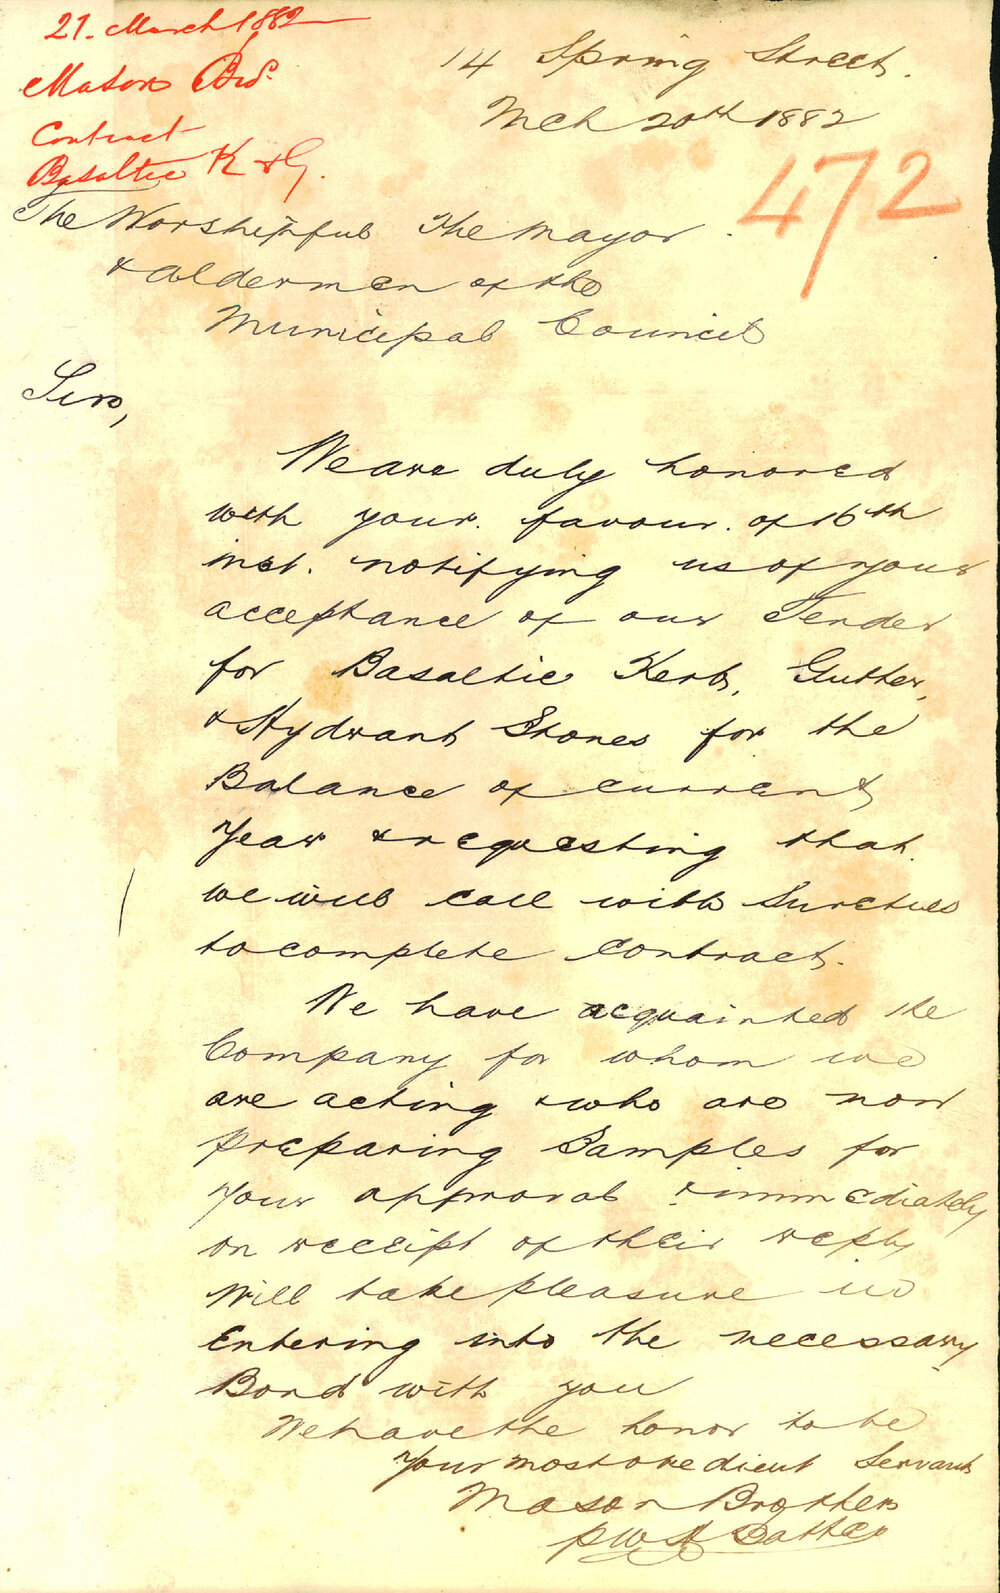 21. March 1882
Mason Bros.
Contract
Basaltic K & G.
14 Spring Street.
Mch 20th 1882
472
The Worshipful The Mayor
& Aldermen of the
Municipal Council
Sirs,
We are duly honored
with your favour of 16th
inst. notifying us of your
acceptance of our Tender
for Basaltic Kerb, Gutter,
& Hydrant Stones for the
Balance of current
Year & requesting that
we will call with Sureties
to complete contract.
We have acquainted the
Company for whom we
are acting & who are now
preparing Samples for
Your approval & immediately
on receipt of their reply
Will take pleasure in
Entering into the necessary
Bond with you
We have the honor to be
Your most obedient Servants
Mason Brothers